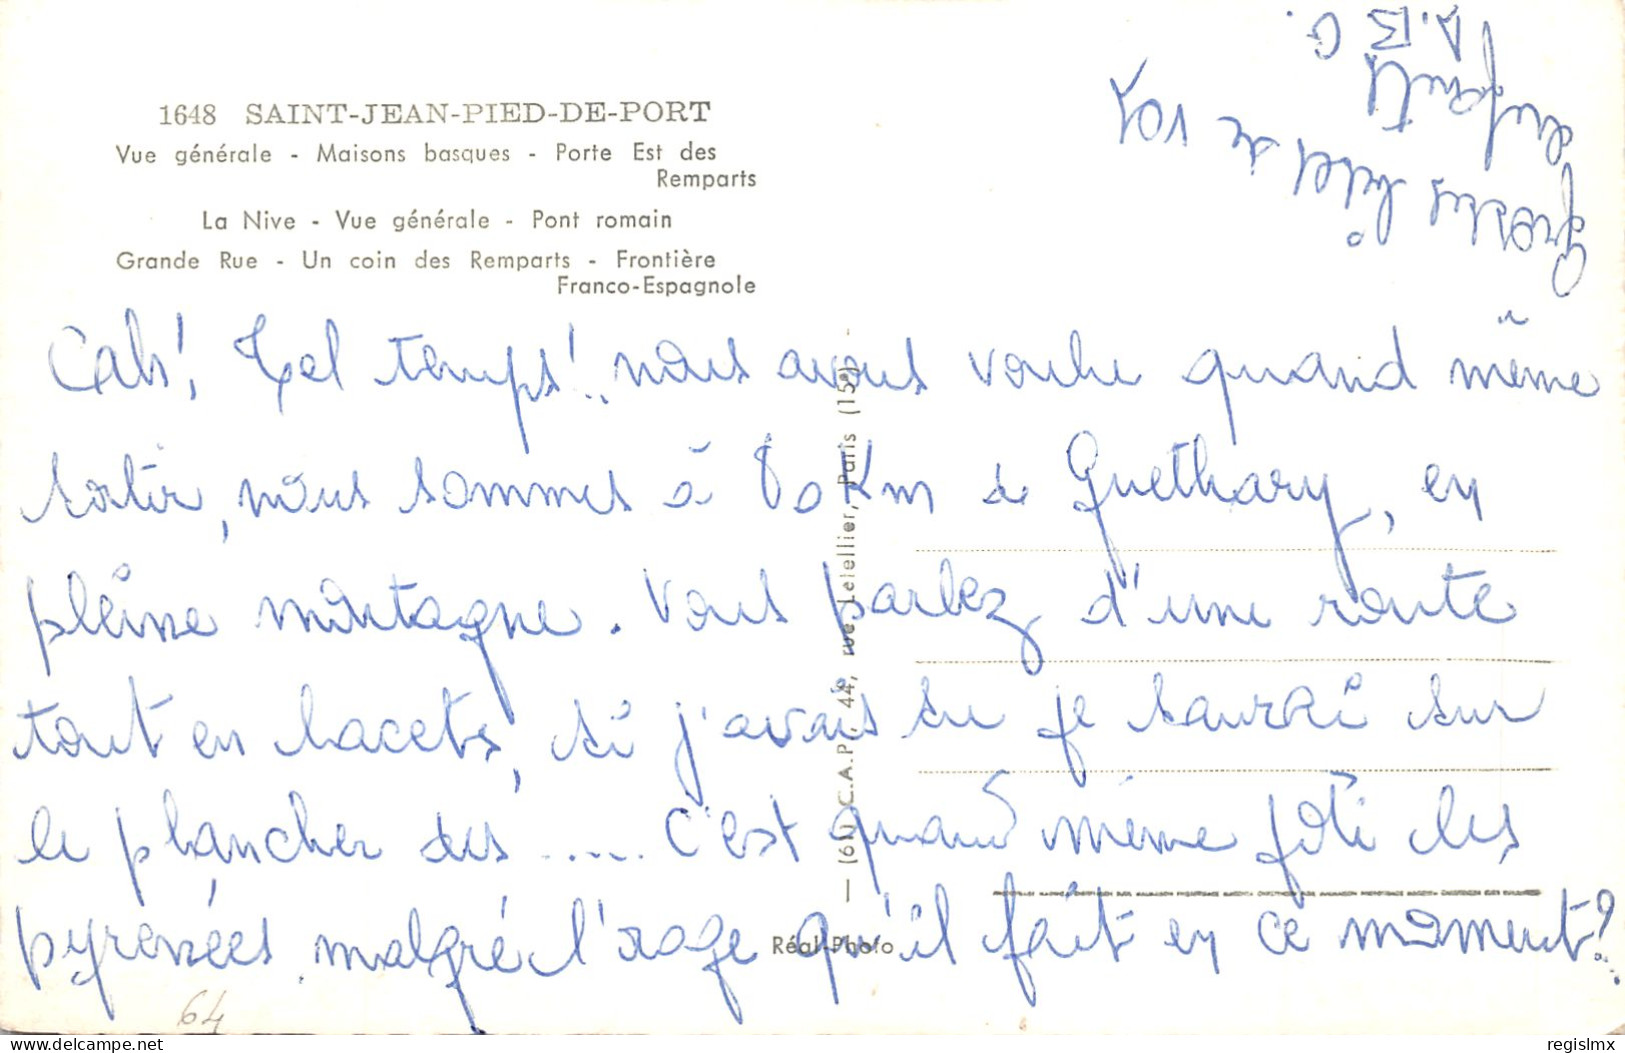 1648 SAINT-JEAN-PIED-DE-PORT
Vue générale - Maisons basques - Porte Est des
Remparts
La Nive - Vue générale - Pont romain
Grande Rue - Un coin des Remparts - Frontière
Franco-Espagnole
Grosses bises de vos
enfants
A.B G.
! Quel temps!.. nous avons voulu quand même
sortir, nous sommes à 80 Km de Guethary, en
pleine montagne. Vous parlez d'une route
tout en lacets, si j'avais su je serai sur
le plancher des ..... C'est quand même joli les
pyrénées malgré l'orage qu'il fait en ce moment?..
— (61) C.A.P. 44, rue Letellier, Paris (15e) -
Réal-Photo
64
regislmx
delcampe.net